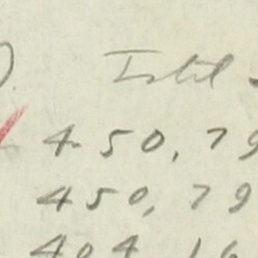 Total
450,79
450,79
404,16